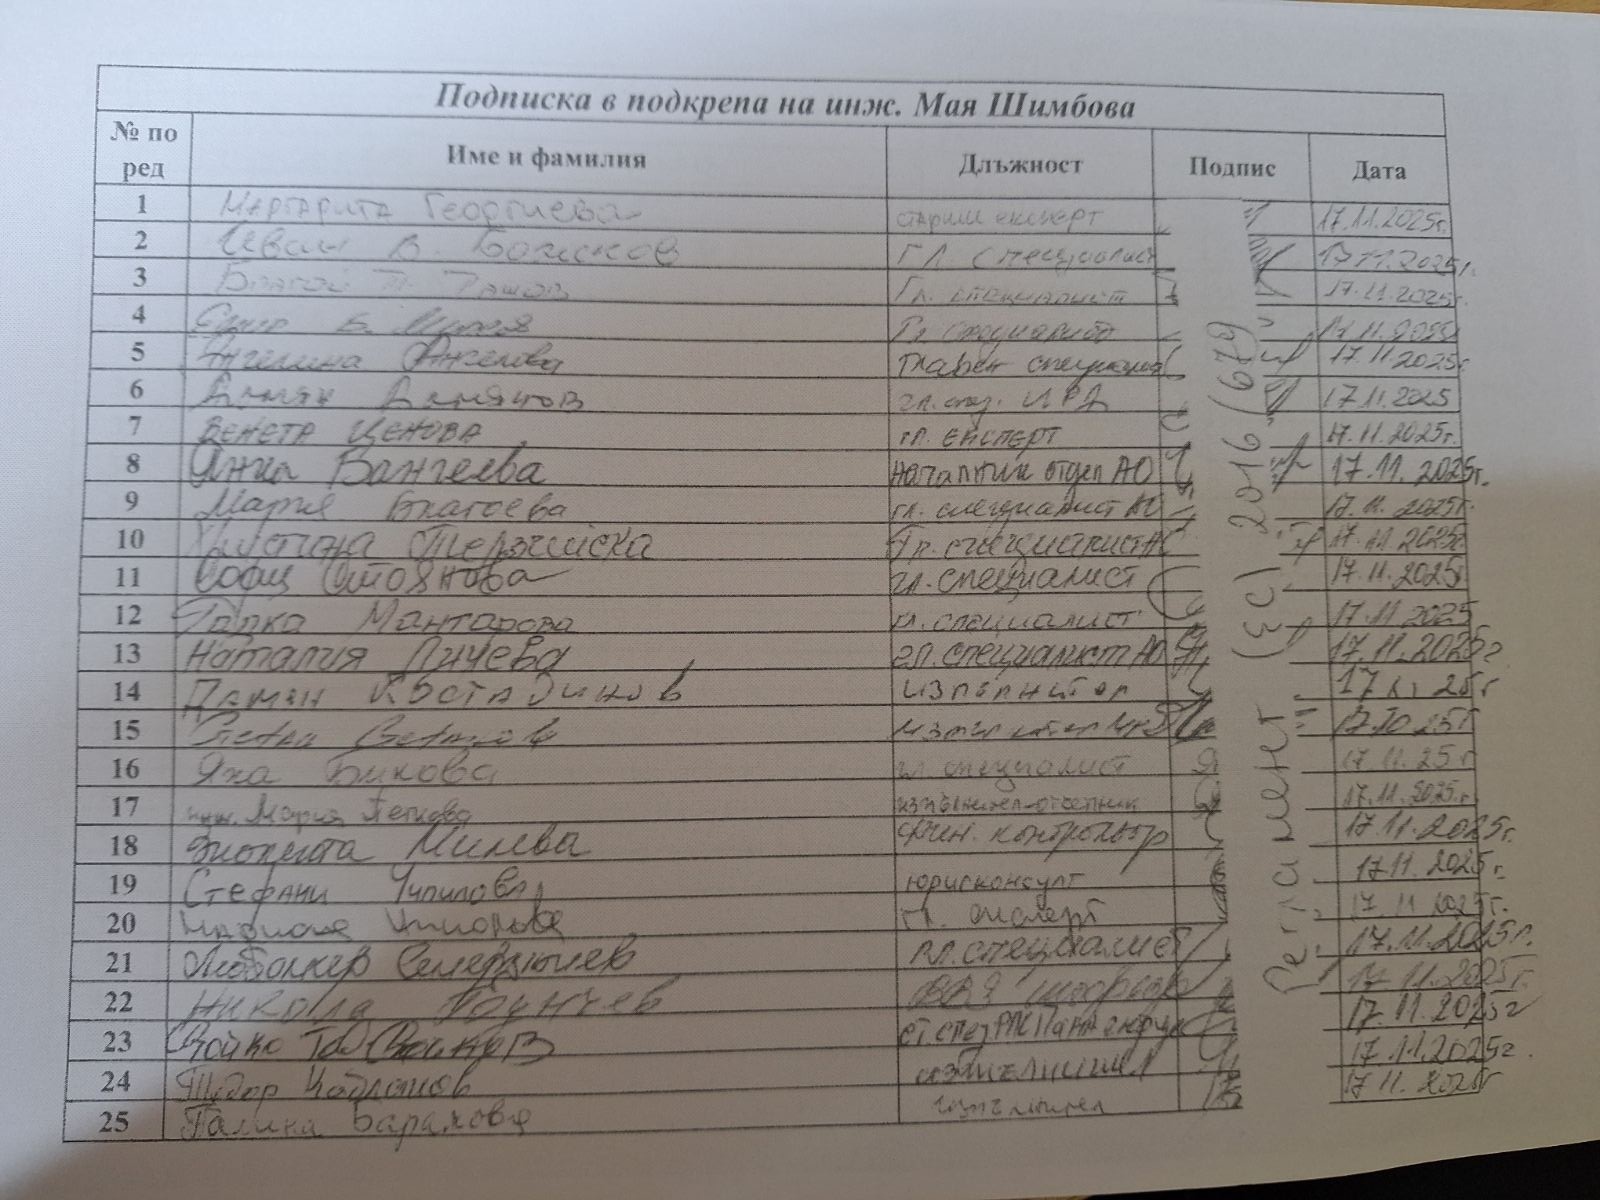 Подписка в подкрепа на инж. Мая Шимбова
№ по ред Име и фамилия Длъжност Подпис Дата
1 Маргарита Георгиева старши експерт 17.11.2025г.
2 Иван В. Божков Гл. специалист 17.11.2025г.
3 Благой Гл. специалист 17.11.2025г.
4 Гл. специалист 17.11.2025
5 Ангелина Ангелова Главен специалист 17.11.2025г.
6 Дамян Дамянов гл. спец. 17.11.2025
7 Венета Ценова гл. експерт 17.11.2025г.
8 Янка Вангелова началник отдел АО 17.11.2025г.
9 Мария Благоева гл. специалист АО 17.11.2025г.
10 Христина Терзийска Гл. специалист АО 17.11.2025г
11 Софи Стоянова гл. специалист 17.11.2025г
12 Мантарова гл. специалист 17.11.2025
13 Наталия Личева гл. специалист АО 17.11.2025г
14 Пламен Костадинов изпълнител 17.11.25г
15 Петър изпълнител
16 Яна Бикова гл. специалист 17.11.25г
17 инж. Мария Пенкова изпълнител-отчетник 17.11.2025г.
18 Виолета Милева фин. контрольор 17.11.2025г.
19 Стефани юрисконсулт 17.11.2025г.
20 гл. експерт 17.11.2025г.
21 Любомир гл. специалист 17.11.2025г.
22 Никола шофьор 17.11.2025г.
23 Бойко ст. спец 17.11.2025г
24 Тодор изпълнител 17.11.2025г.
25 Галина Баракова изпълнител 17.11.2025г
Регламент (ЕС) 2016/679